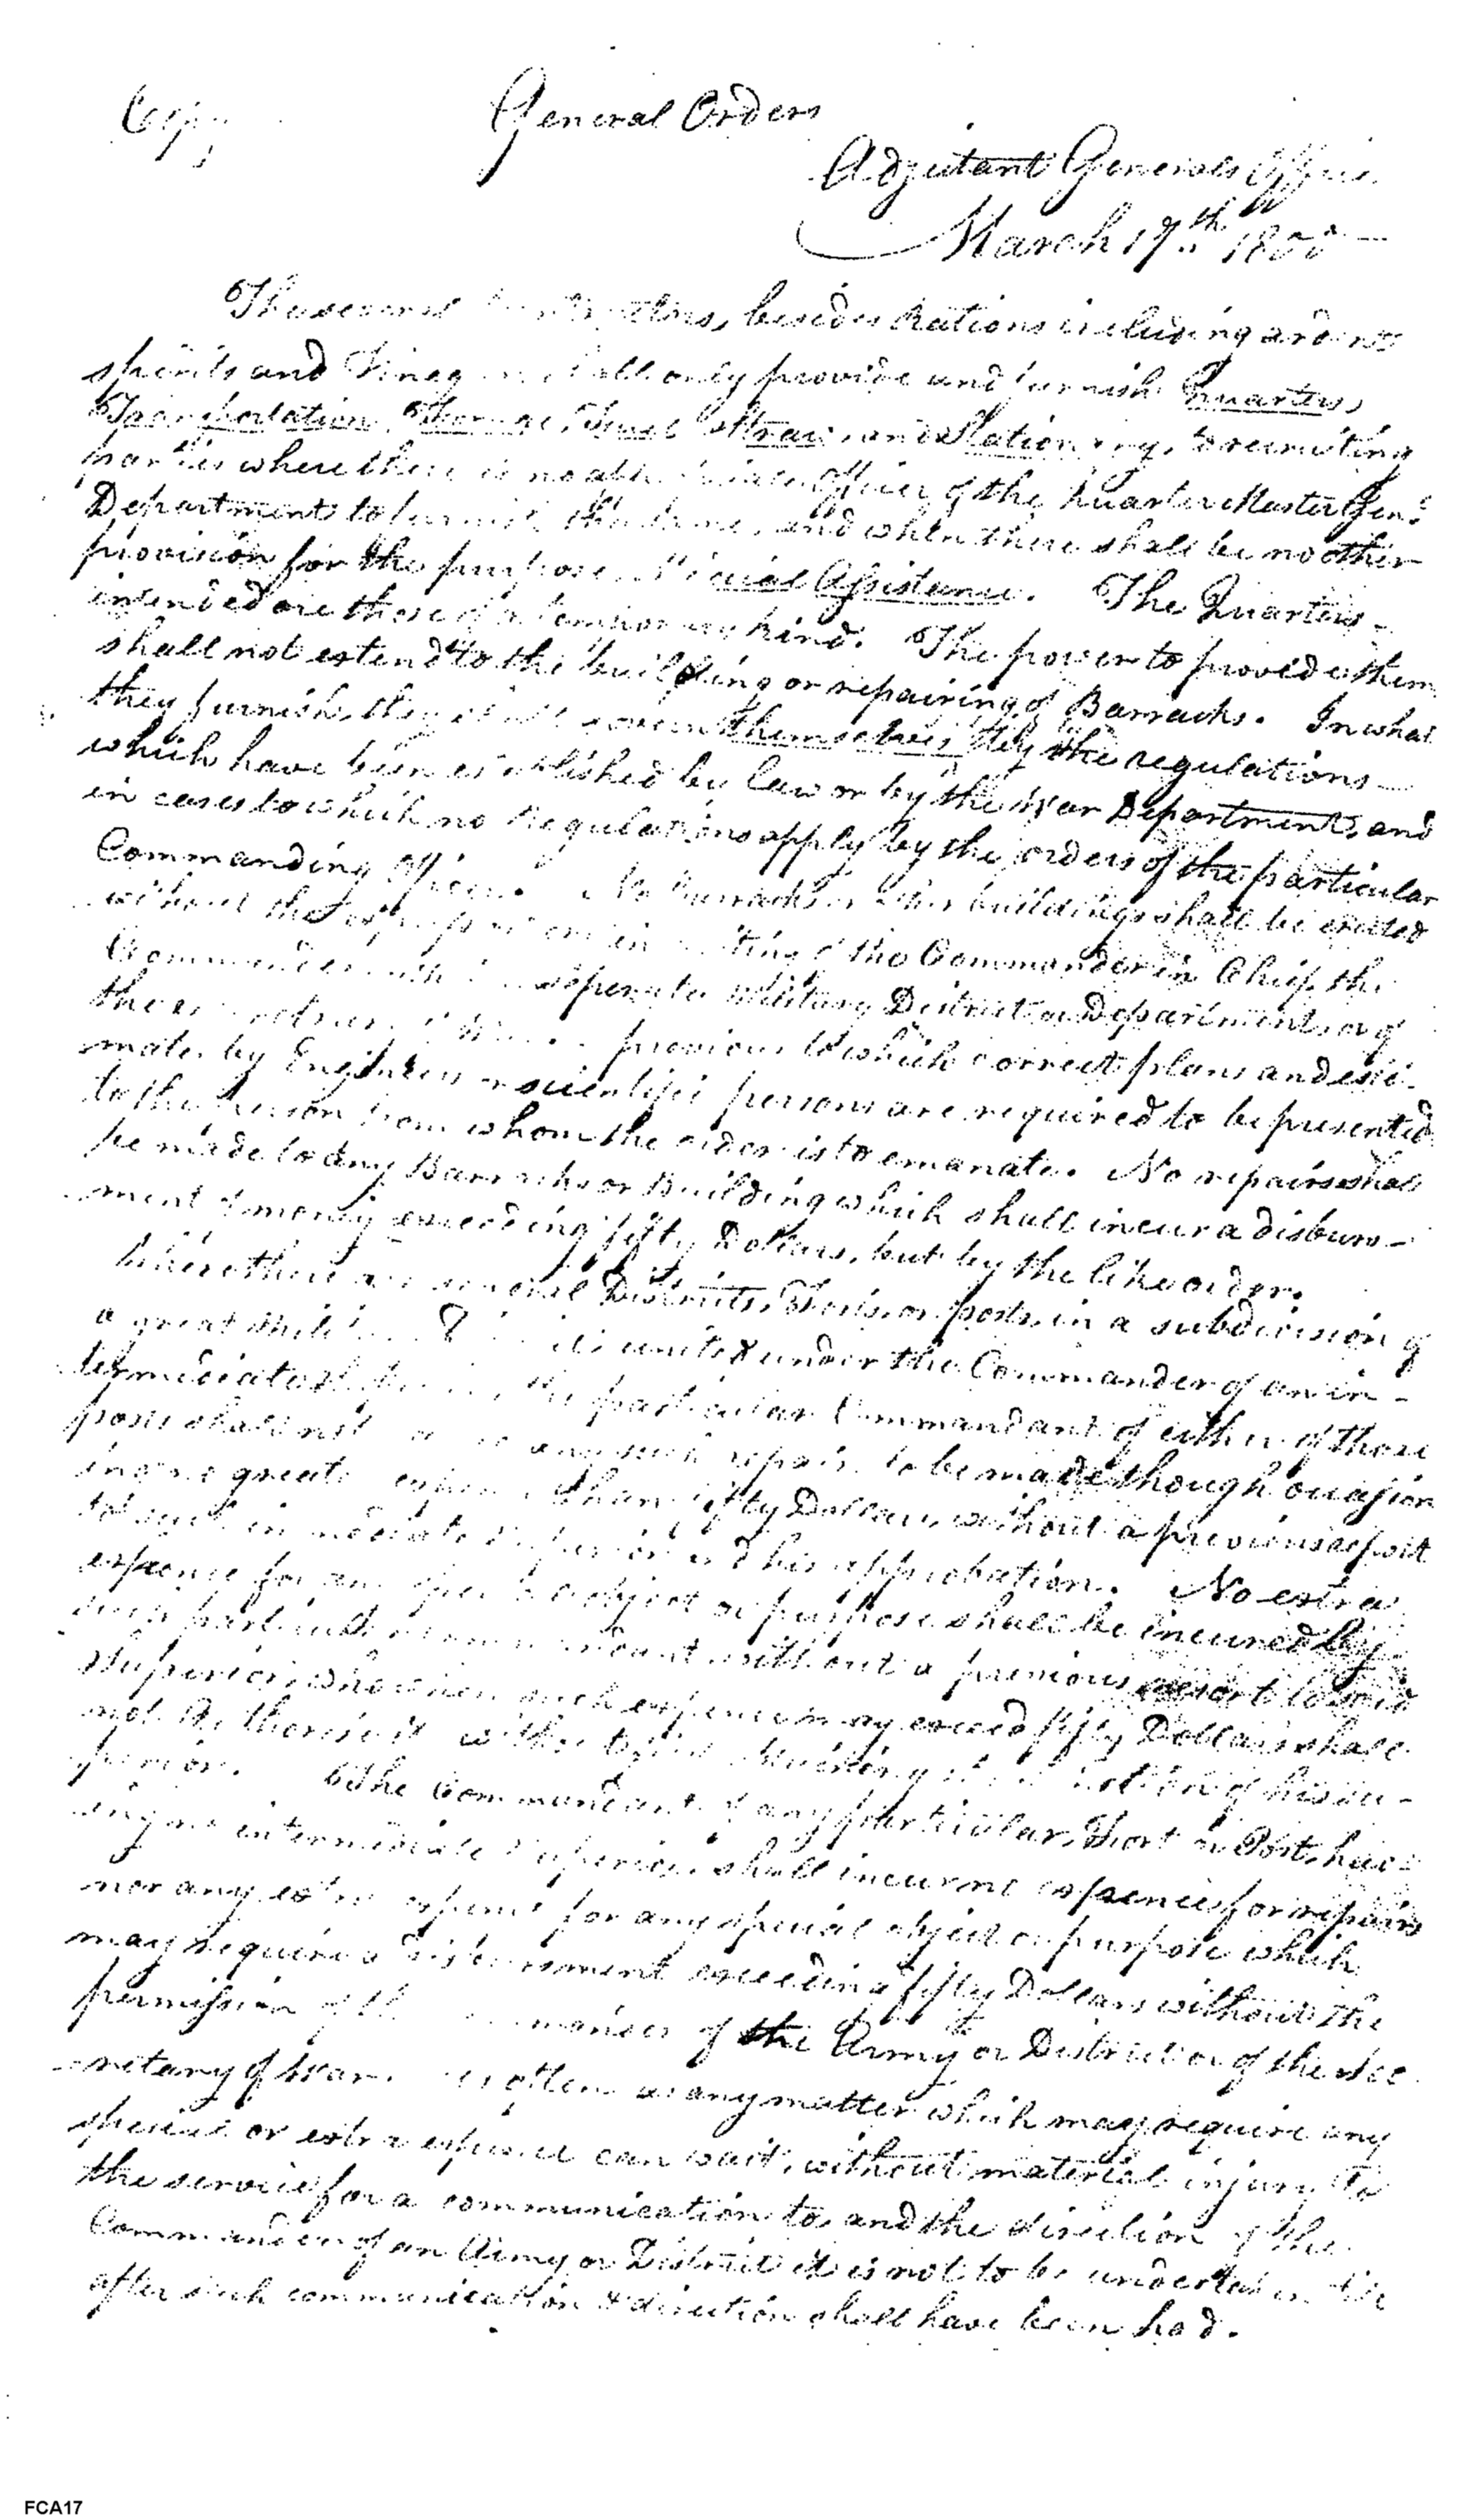 Copy
General Orders
Adjutant Generals Office
March 17th 1800
The several besides Rations including ardent
spirits and only provide and furnish Quarters,
Transportation, Forage, Fuel Straw and Stationery, to recruiting
parties where there is no Officer of the Quarter Master Genl
Department to furnish the same, and when there shall be no other
provision for the purpose. Assistance. The Quarters
intended are those of a temporary kind. The power to provide them
shall not extend to the building or repairing of Barracks. In what
they furnish, they shall govern themselves by the regulations
which have been established by law or by the War Department, and
in cases to which no Regulations apply by the orders of the particular
Commanding Officer. No Barracks or other buildings shall be erected
without the in writing of the Commander in Chief, the
Commander seperate Military District or Department, or of
the previous to which correct plans and esti-
mates by Engineers or scientific persons are required to be presented
to the person from whom the order is to emanate. No repairs shall
be made to any Barracks or Building which shall incur a disburse-
ment of money exceeding fifty Dollars, but by the like order.
Where there are several Districts, Forts or posts, in a subdivision of
a great united under the Commander of an in-
termediate the particular Commandant of either of those
posts shall not any such repair to be made though occasion
ing no greater expence than fifty Dollars, without a previous report
to such immediate superior and his approbation. No extra
expence for any object or purpose shall be incurred by
such particular commandant without a previous to said
Superior, who when such expence may exceed fifty Dollars shall
not Authorise it of his su-
perior. The Commandant of any particular Fort or Post, hav-
ing no intermediate Superior shall incur no expence for repairs
nor any extra expence for any special object or purpose which
may require a disbursement exceeding fifty Dollars without the
permission of the of the Army or District or of the Sec
retary of War. As often as any matter which may require any
special or extra expence can wait, without material injury to
the service for a communication to, and the direction of the
Commander of an Army or District it is not to be undertaken till
after such communication & direction shall have been had.
FCA17